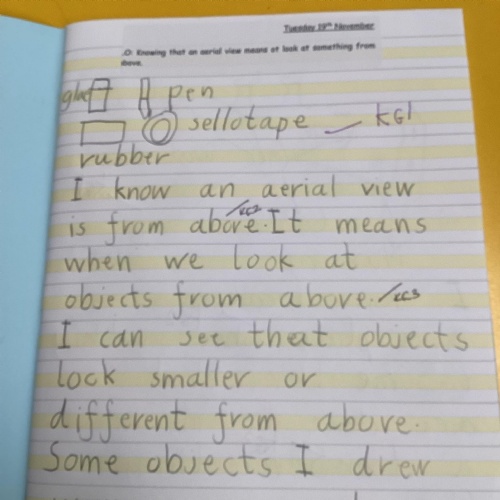 Tuesday 19th November
LO: Knowing that an aerial view means at look at something from
above.
pen
sellotape KG1
rubber
I know an aerial view
is from above. It means
when we look at
objects from above.
I can see that objects
lock smaller or
different from above.
Some objects I drew